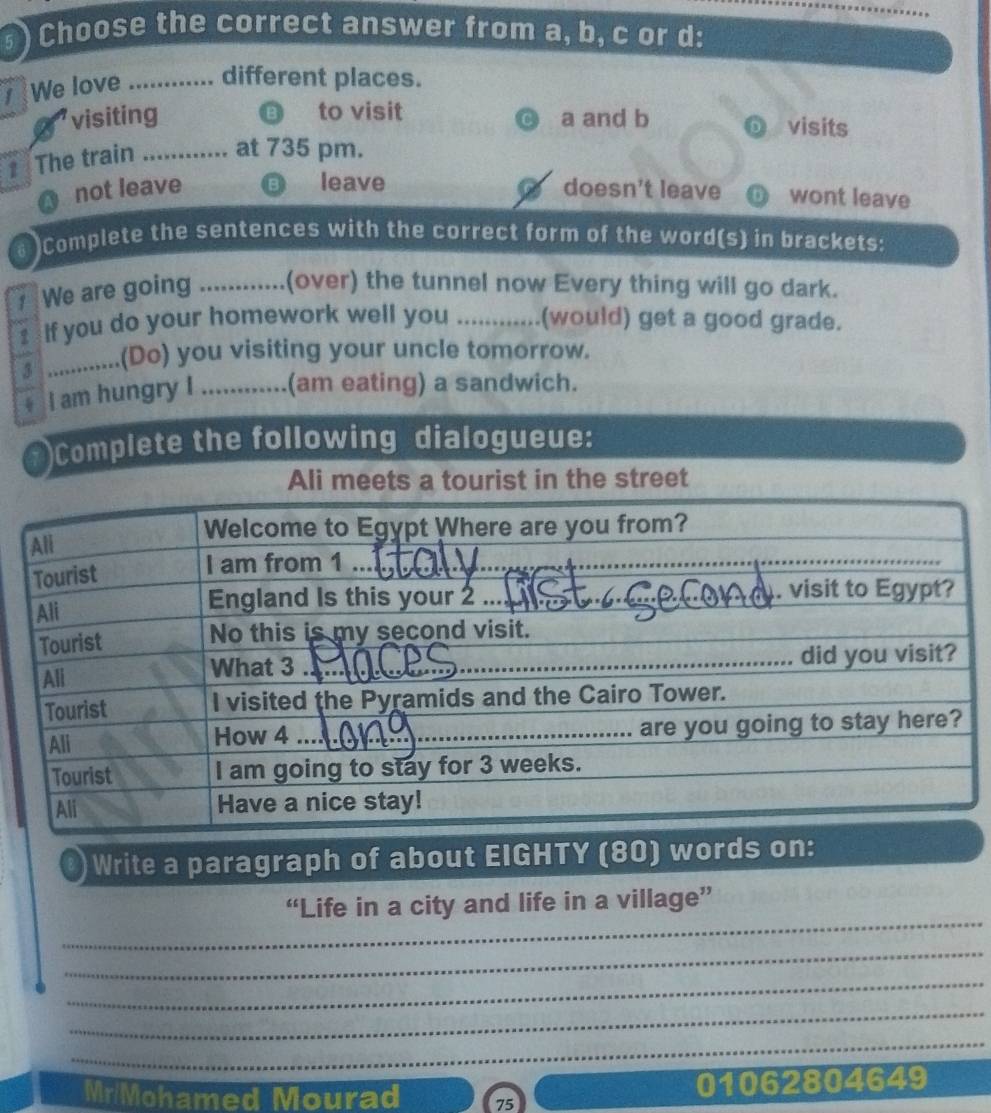 5 Choose the correct answer from a, b, c or d:
1 We love ............ different places.
visiting B to visit C a and b D visits
2 The train ............ at 735 pm.
A not leave B leave C doesn't leave D wont leave
6 Complete the sentences with the correct form of the word(s) in brackets:
1 We are going ............(over) the tunnel now Every thing will go dark.
2 If you do your homework well you ............(would) get a good grade.
3 ............(Do) you visiting your uncle tomorrow.
4 I am hungry I ............(am eating) a sandwich.
7 Complete the following dialogueue:
Ali meets a tourist in the street
Ali Welcome to Egypt Where are you from?
Tourist I am from 1 ... Italy ...
Ali England Is this your 2 ... first second ... visit to Egypt?
Tourist No this is my second visit.
Ali What 3 ... Places ... did you visit?
Tourist I visited the Pyramids and the Cairo Tower.
Ali How 4 ... Long ... are you going to stay here?
Tourist I am going to stay for 3 weeks.
Ali Have a nice stay!
8 Write a paragraph of about EIGHTY (80) words on:
“Life in a city and life in a village”
Mr/Mohamed Mourad 75 01062804649